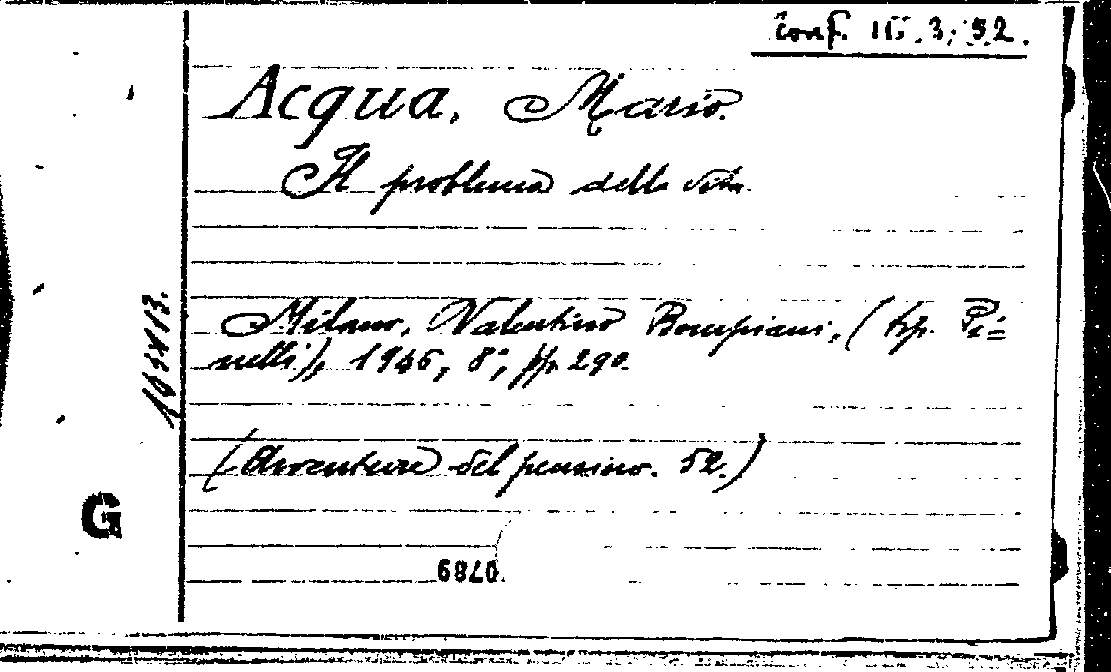 Conf. III. 3. 52.
Acqua, Mario.
Il problema della vita.
Milano, Valentino Bompiani, (tip. Pi=
nelli), 1946, 8°, pp. 290.
(Avventure del pensiero. 52.)
G
0789